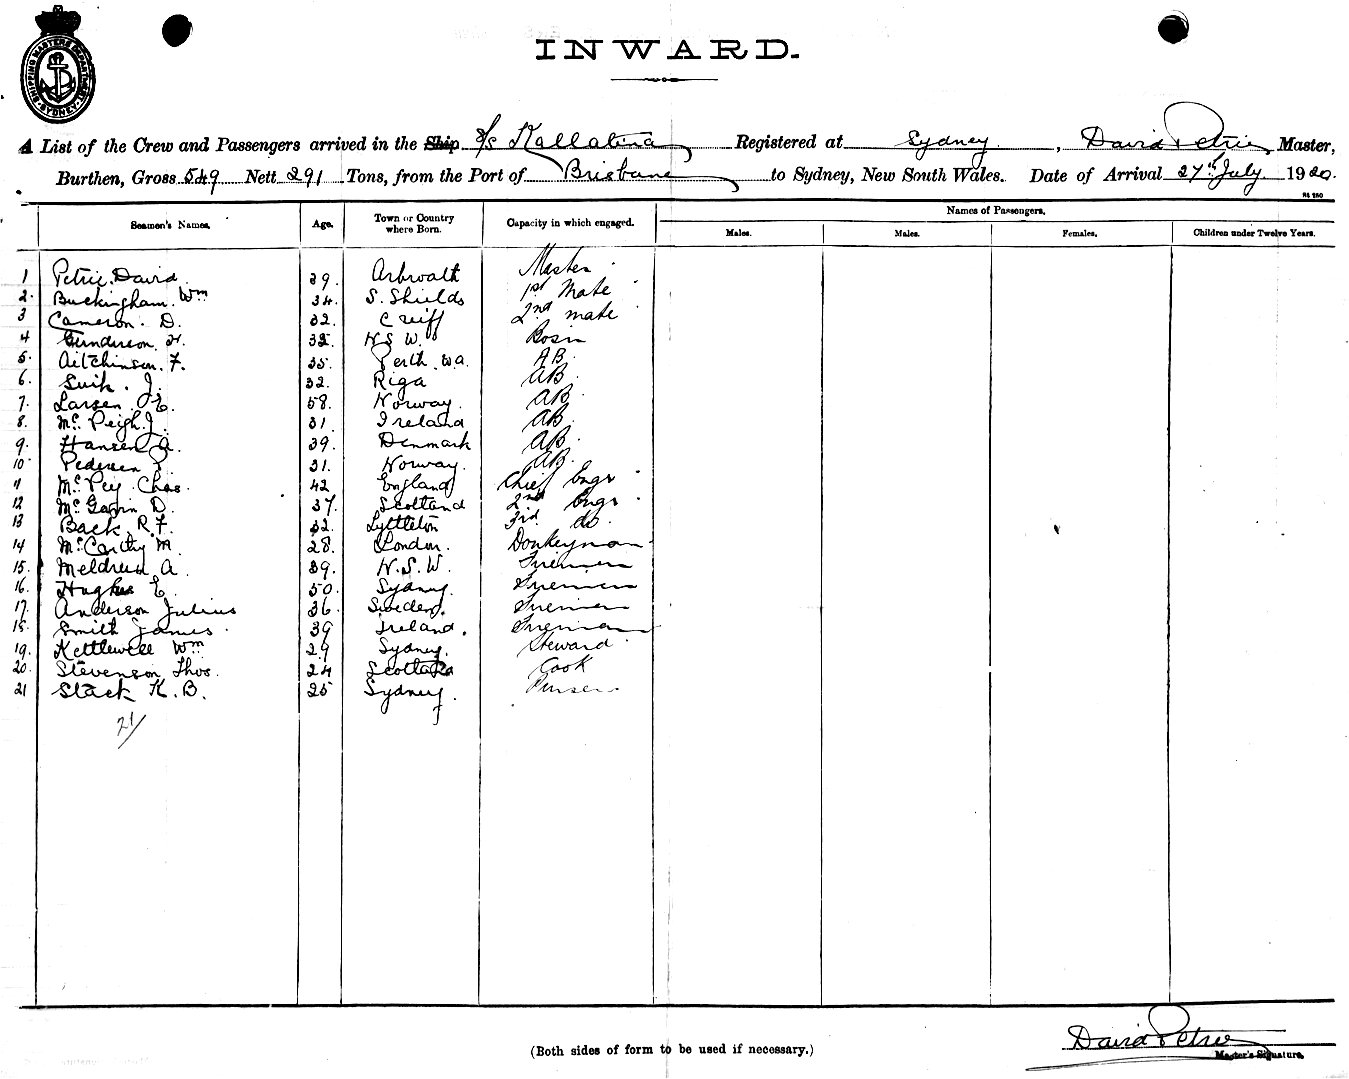 SHIPPING MASTERS DEPARTMENT SYDNEY
INWARD.
A List of the Crew and Passengers arrived in the Ship S/S Kallatina Registered at Sydney, David Petrie Master,
Burthen, Gross 549 Nett 291 Tons, from the Port of Brisbane to Sydney, New South Wales. Date of Arrival 27th July 1920.
Seamen's Names. Age. Town or Country where Born. Capacity in which engaged. Names of Passengers.
Males. Males. Females. Children under Twelve Years.
1 Petrie David 39. Arbroath Master
2. Buckingham. Wm 34. S. Shields 1st Mate
3 Cameron. D. 32. Crieff 2nd mate
4 Gunderson H. 32. N S W. Bosin
5. Aitchinson. F. 35. Perth WA. AB.
6. Suik. J. 32. Riga AB.
7. Larsen E. 58. Norway. AB
8. Mc Peigh J. 31 Ireland AB
9. Hansen A. 39. Denmark AB
10 Pedersen P. 31. Norway. AB
11 Mc Pey Chas. 42 England Chief Engr
12 Mc Gavin D. 37. Scotland 2nd Engr
13 Back R. F. 32. Lyttleton 3rd do.
14 Mc Carthy M 28. London. Donkeyman
15. Meldrum A. 39. N. S. W. Fireman
16. Hughes E. 50. Sydney. Fireman
17. Anderson Julius 36. Sweden. Fireman
18. Smith James. 39 Ireland. Fireman
19. Kettlewell Wm 29 Sydney. Steward
20. Stevenson Thos. 24 Scotland Cook
21 Stack K. B. 25 Sydney. Purser
21/
David Petrie
Master's Signature.
(Both sides of form to be used if necessary.)